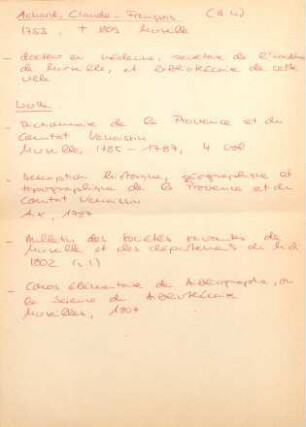 Achard, Claude-François (B 4)
1753, † 1809 Marseille
- docteur en médecine, secrétaire de l'académie
de Marseille, et bibliothécaire de cette
ville
- Dictionnaire de la Provence et du
Comtat Venaissin
Marseille, 1785 - 1787, 4 vol
- Description historique, géographique et
topographique de la Provence et du
Comtat Venaissin
Aix, 1787
- Bulletin des sociétés savantes de
Marseille et des départements du Midi
1802
- Cours élémentaire de bibliographie, ou
la Science du bibliothécaire
Marseille, 1807